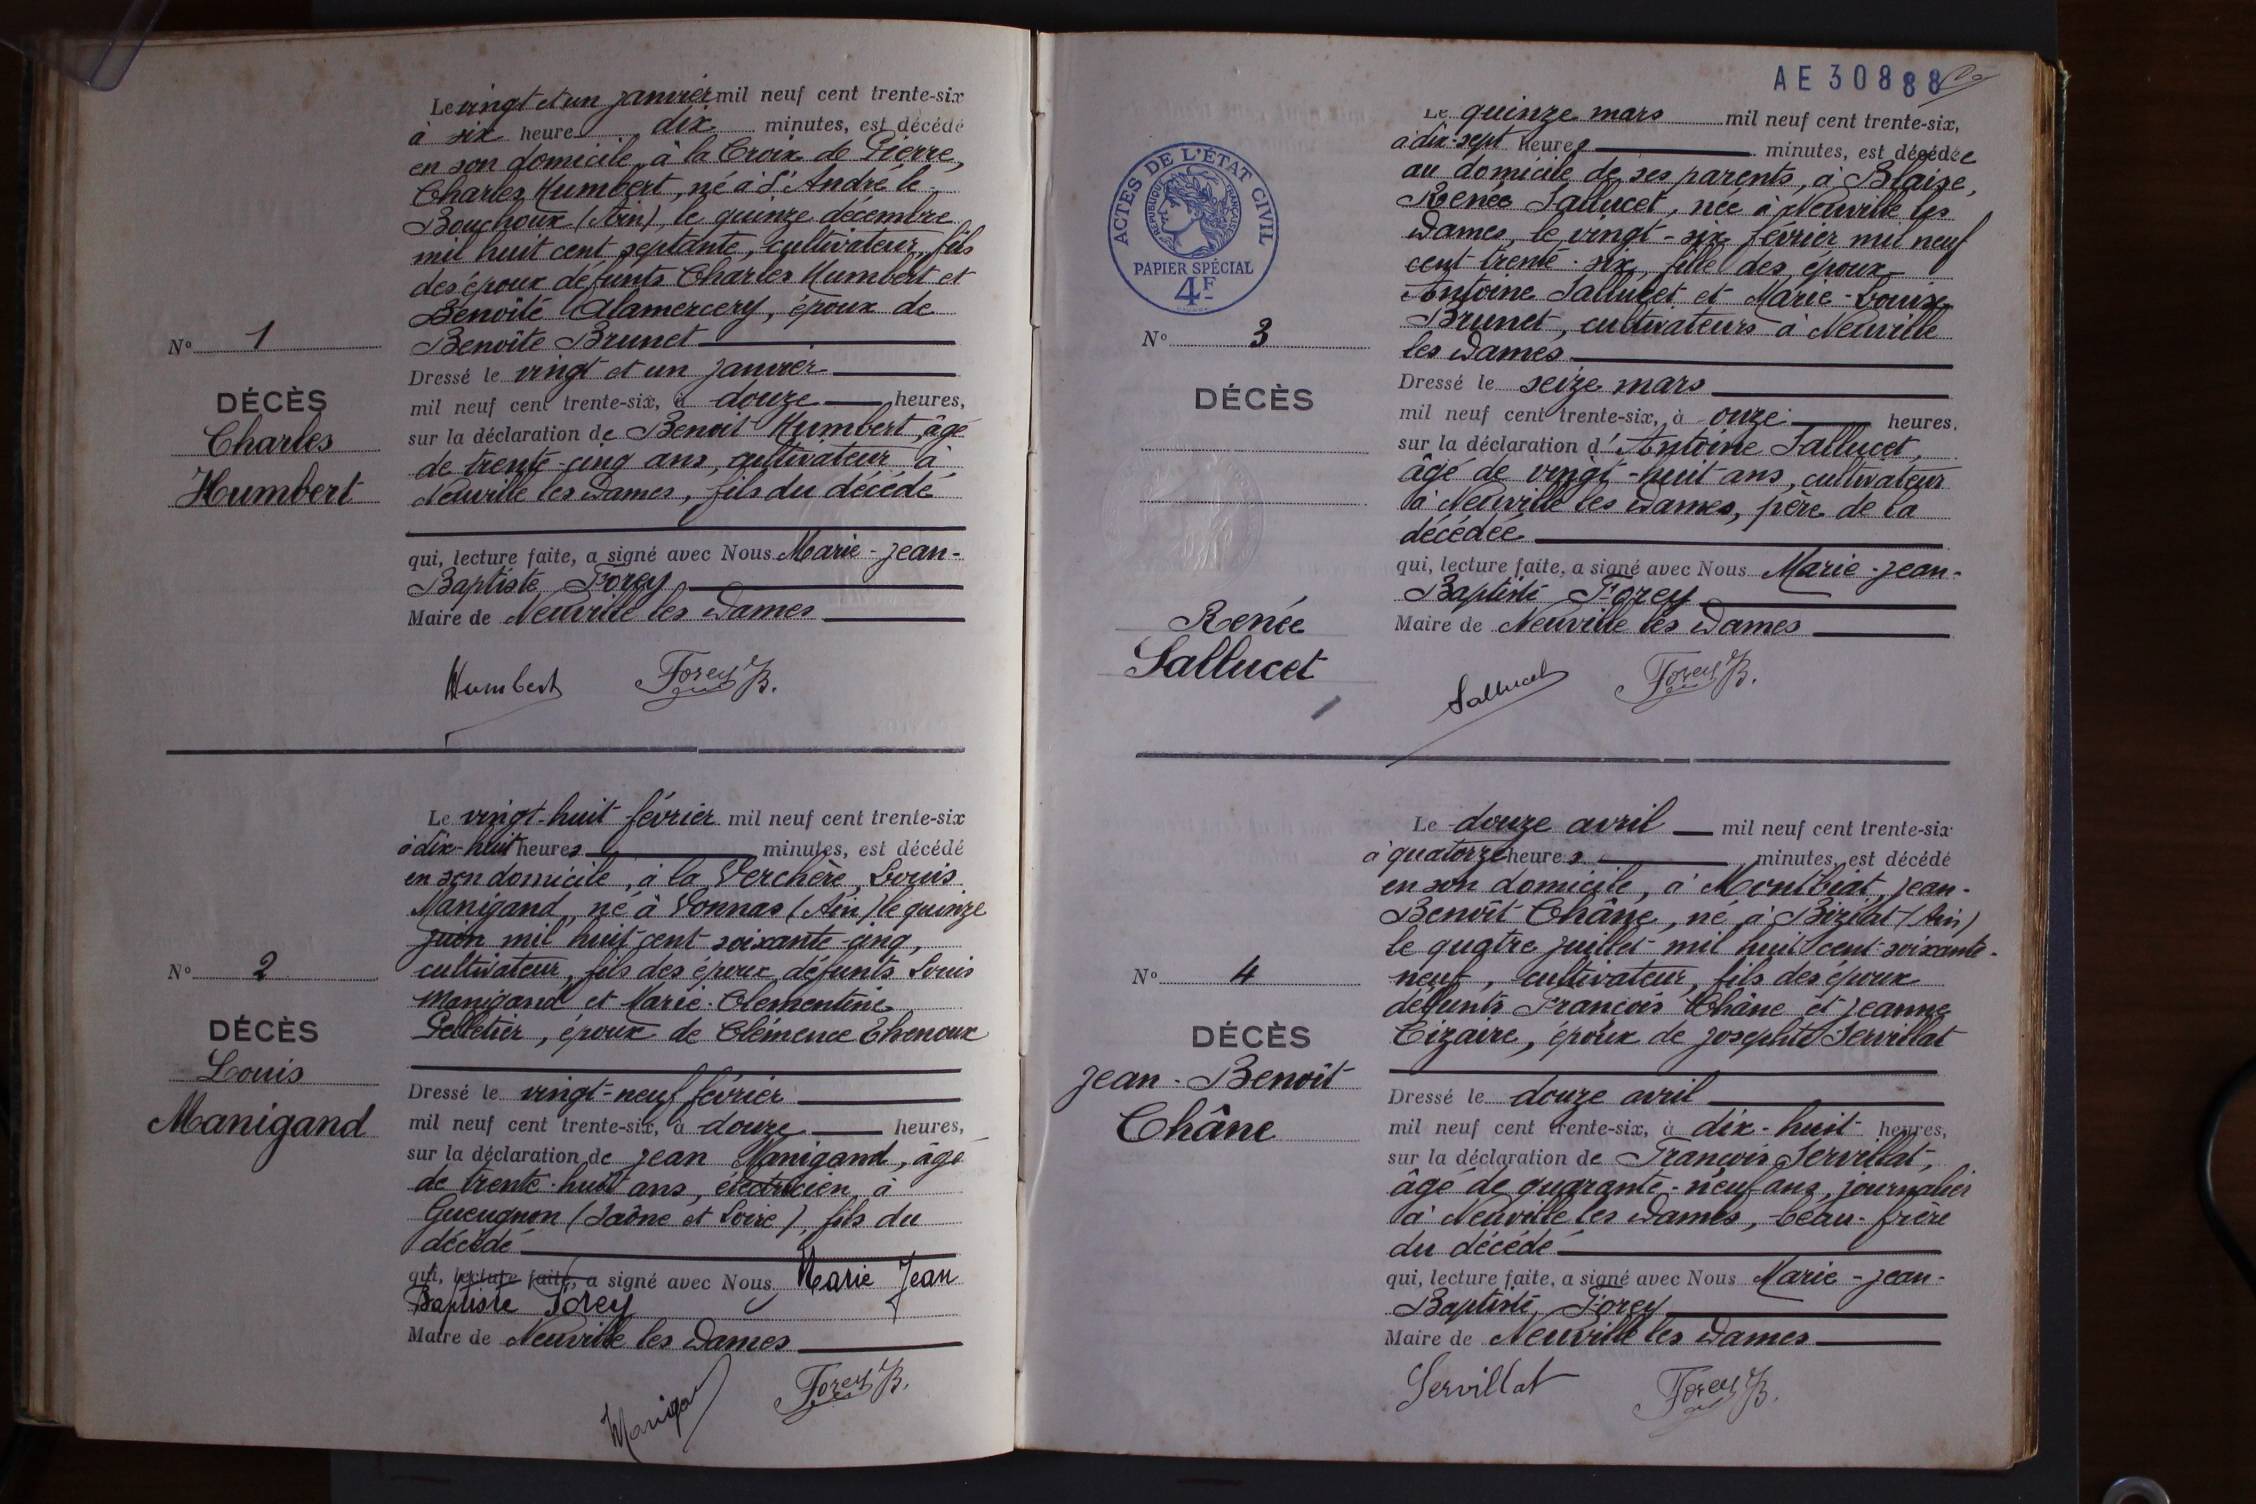 Le vingt et un janvier mil neuf cent trente-six
à six heure dix minutes, est décédé
en son domicile, à la Croix de Pierre,
Charles Humbert, né à St André le
Bouchoux (Ain), le quinze décembre
mil huit cent septante, cultivateur, fils
des époux défunts Charles Humbert et
Benoîte Alamercery, époux de
Benoîte Brunet
N° 1
DÉCÈS
Charles
Humbert
Dressé le vingt et un janvier
mil neuf cent trente-six, à douze heures,
sur la déclaration de Benoit Humbert, âgé
de trente-cinq ans, cultivateur à
Neuville les Dames, fils du décédé
qui, lecture faite, a signé avec Nous Marie-Jean-
Baptiste Forey
Maire de Neuville les Dames
Humbert Forey B.
Le vingt-huit février mil neuf cent trente-six
à dix-huit heures minutes, est décédé
en son domicile, à la Verchère, Louis
Manigand, né à Vonnas (Ain) le quinze
juin mil huit cent soixante-cinq,
cultivateur, fils des époux défunts Louis
Manigand et Marie-Clémentine
Pelletier, époux de Clémence Thenoux
N° 2
DÉCÈS
Louis
Manigand
Dressé le vingt-neuf février
mil neuf cent trente-six, à douze heures,
sur la déclaration de Jean Manigand, âgé
de trente-huit ans, électricien, à
Gueugnon (Saône et Loire), fils du
décédé
qui, lecture faite, a signé avec Nous Marie Jean
Baptiste Forey
Maire de Neuville les Dames
Manigand Forey B.
AE 30888
Le quinze mars mil neuf cent trente-six,
à dix-sept heures minutes, est décédée
au domicile de ses parents, à Blaise,
Renée Sallucet, née à Neuville les
Dames, le vingt-six février mil neuf
cent trente-six, fille des époux
Antoine Sallucet et Marie-Louise
Brunet, cultivateurs à Neuville
les Dames
ACTES DE L'ÉTAT CIVIL
RÉPUBLIQUE FRANÇAISE
PAPIER SPÉCIAL
4F
N° 3
DÉCÈS
Renée
Sallucet
Dressé le seize mars
mil neuf cent trente-six, à onze heures.
sur la déclaration d'Antoine Sallucet,
âgé de vingt-huit ans, cultivateur
à Neuville les Dames, père de la
décédée
qui, lecture faite, a signé avec Nous Marie-Jean-
Baptiste Forey
Maire de Neuville les Dames
Sallucet Forey B.
Le douze avril mil neuf cent trente-six
à quatorze heures minutes, est décédé
en son domicile, à Montbiat, Jean-
Benoît Châne, né à Biziat (Ain)
le quatre juillet mil huit cent soixante-
neuf, cultivateur, fils des époux
défunts François Châne et Jeanne
Cizaire, époux de Josephte Servillat
N° 4
DÉCÈS
Jean-Benoît
Châne
Dressé le douze avril
mil neuf cent trente-six, à dix-huit heures,
sur la déclaration de François Servillat,
âgé de quarante-neuf ans, journalier
à Neuville les Dames, beau-frère
du décédé
qui, lecture faite, a signé avec Nous Marie-Jean-
Baptiste Forey
Maire de Neuville les Dames
Servillat Forey B.